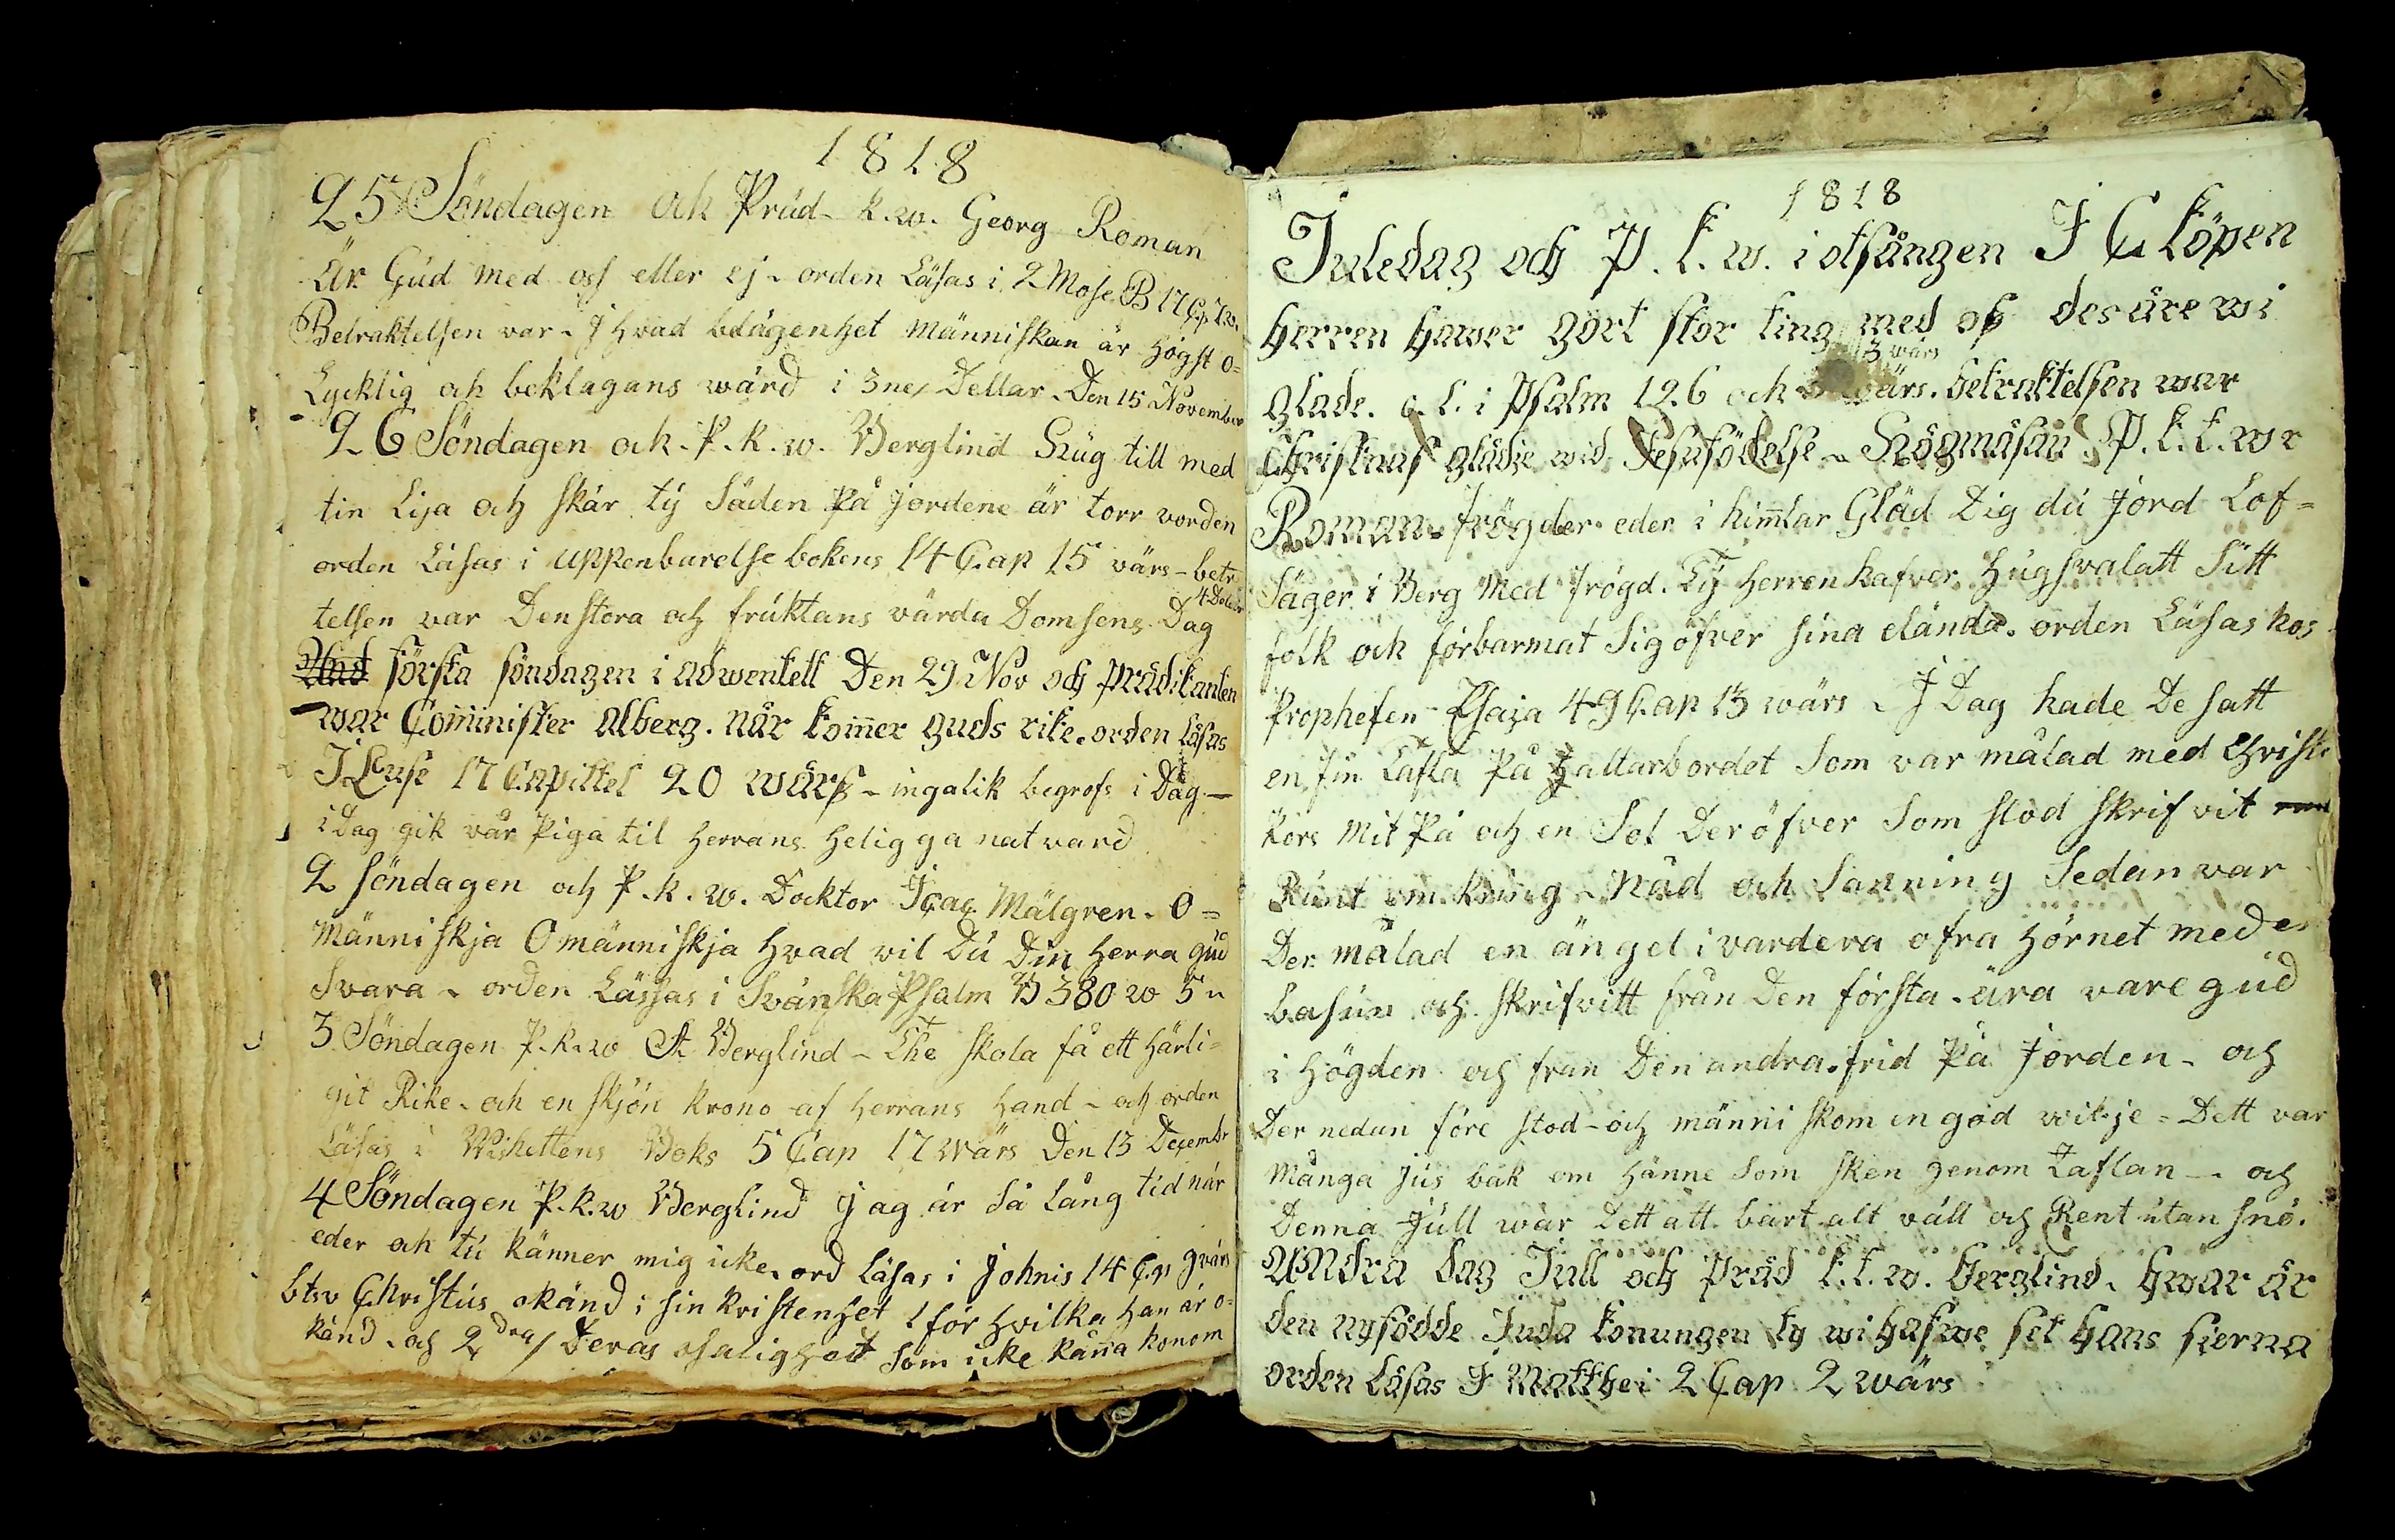 1818
25 Söndagen och Präd- k.w. Georg Roman
Är Gud med oss eller ej - orden Läsas i 2 Mose B 17 Cap 7 w.
Betraktelsen var - I hvad belägenhet människan är högst o=
Lycklig och beklagans wärd i 3ne/ Dellar. Den 15 November
26 Söndagen och - P. k. w. Berglind Hug till med
tin Lija och skär ty Säden På jordene är torr vorden
orden Läsas i uppenbarelse bokens 14 Cap 15 värs - betr
telsen var Den stora och fruktans värda Domsens Dag
första söndagen i adwentett Den 29 Nov och Prädikanten
war Comminister alberg. när kommer guds rike. orden läsas
I Luse 17 Capittel 20 wärs - ingalik begrofs i Dag -
i Dag gik vår Piga til Herrans Heligga natvard
2 söndagen och P. k. w. Docktor Içac Mälgren. O=
Människja O människja hvad vil Du Din Herra gud
Svara - orden Lässas i Svänska Psalm B 380 w 5
3 Söndagen P. k. w Berglind - The skola få ett härli=
git Rike - och en skjön krono af Herrans Hand - och orden
Läsas i Wishettens Boks 5 Cap 17 wärs Den 13 Decembr
4 Söndagen P. k. w Berglind jag är Så Lång tid när
eder och tu känner mig icke. ord Läsas i Johnis 14 Cap 9 värs
btrv Christus okänd i sin kristenhet 1 för hvilka han är o=
känd. och 2dra/ Deras osalighet som icke känna honom
1818
Juledag och P. k. w. i otsången I C köpen
Herren hawer gort stor ting med oss des äre wi
3 wärs
glade. o. l. i Psalm 126 och wärs. betraktelsen war
Christnas glädje wid Jesu födelse - Högmäsan P. k. k. w r
Roman. frögder eder i himlar Gläd Dig du jord Lof=
Säger i Berg Med frögd. Ty Herren hafver Hugsvalatt Sitt
folk och förbarmat Sig öfver sina elända. orden Läsas hos
Propheten Esaja 49 Cap 13 wärs - I Dag hade De satt
en fin Tafla På haltarbordet Som var målad med Christi
kors mit På och en Sol Der öfver Som stod skrifvit
Runt omkring - Nåd och Sanning Sedan var
Der målad en ängel i vardera öfra hörnet med en
basun och skrifvitt från Den första - ära vare gud
i högden och fran Den andra. frid På jorden - och
Der nedan före stod - och människom en god wilje = Dett var
Många jus bak om hänne Som sken genom Taflan - och
Denna jull war Dett att bart alt väll och Rent utan snö.
andra dag Jull och Präd k. k. w. berglind. hwar är
den nyfödde Juda konungen ty wi hafwe set hans sierna
orden Läsas I Matthei 2 Cap 2 wärs